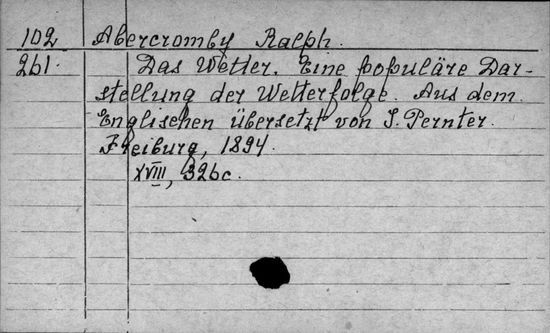 102 Abercromby Ralph.
261. Das Wetter. Eine populäre Dar-
stellung der Wetterfolge. Aus dem
Englischen übersetzt von S. Pernter.
Freiburg, 1894.
XVIII, 326c.